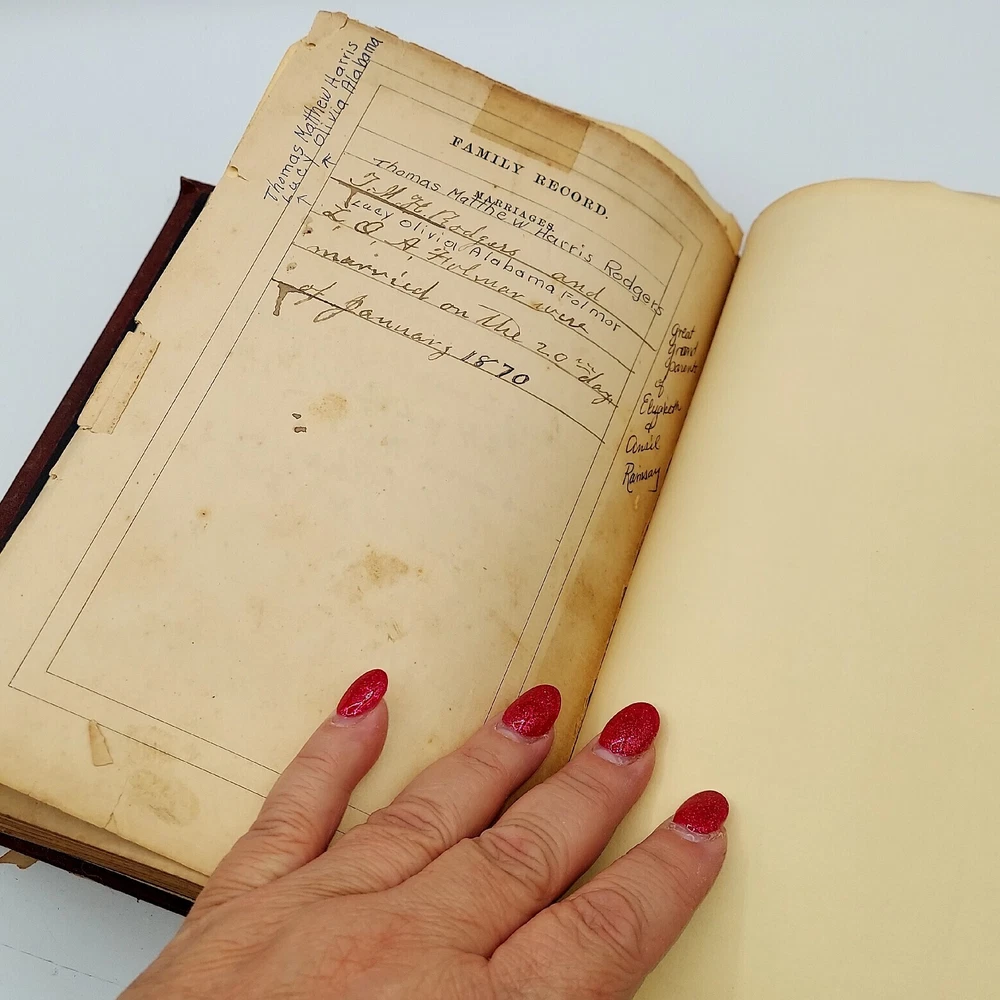 Thomas Matthew Harris
Lucy Olivia Alabama
FAMILY RECORD.
MARRIAGES.
Thomas Matthew Harris Rodgers
T. M. H. Rodgers and
Lucy Olivia Alabama Folmor
L. O. A. Folmar were
married on the 20th day
of January 1870
Great
Grand
parents
of
&
Ansil
Ramsay